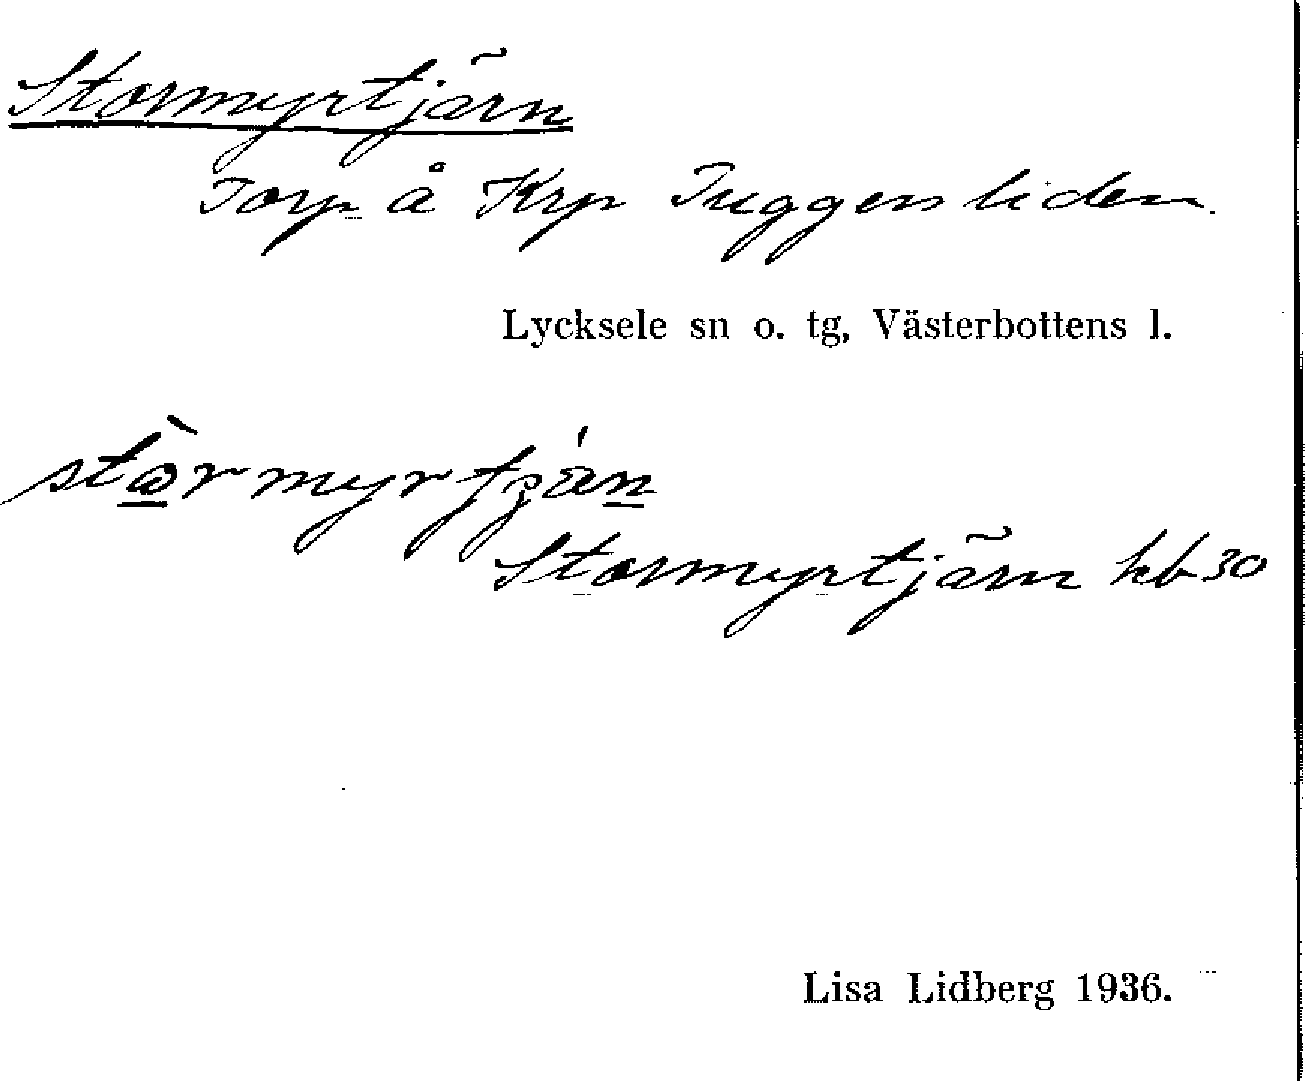 Stormyrtjärn
Torp å Krp Tuggensliden.
Lycksele sn o. tg, Västerbottens l.
Stormyrtjärn hb 30
Lisa Lidberg 1936.